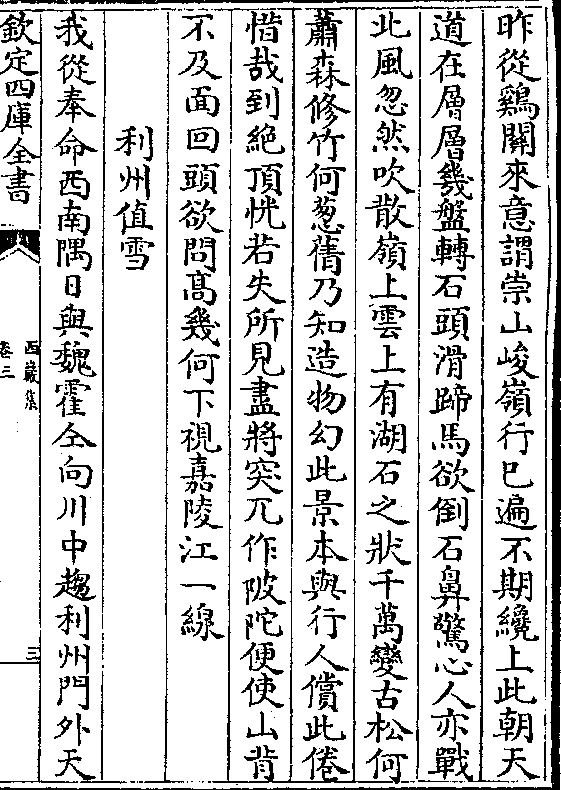 昨從鷄關來意謂崇山峻嶺行已遍不期纔上此朝天
道在層層幾盤轉石頭滑蹄馬欲倒石鼻驚心人亦戰
北風忽然吹散嶺上雲上有湖石之狀千萬變古松何
蕭森修竹何葱蒨乃知造物幻此景本與行人償此倦
惜哉到絶頂恍若失所見盡將突兀作陂陀便使山背
不及面回頭欲問髙幾何下視嘉陵江一線
利州值雪
我從奉命西南隅日與魏霍仝向川中趨利州門外天
欽定四庫全書
西巖集
卷三
三